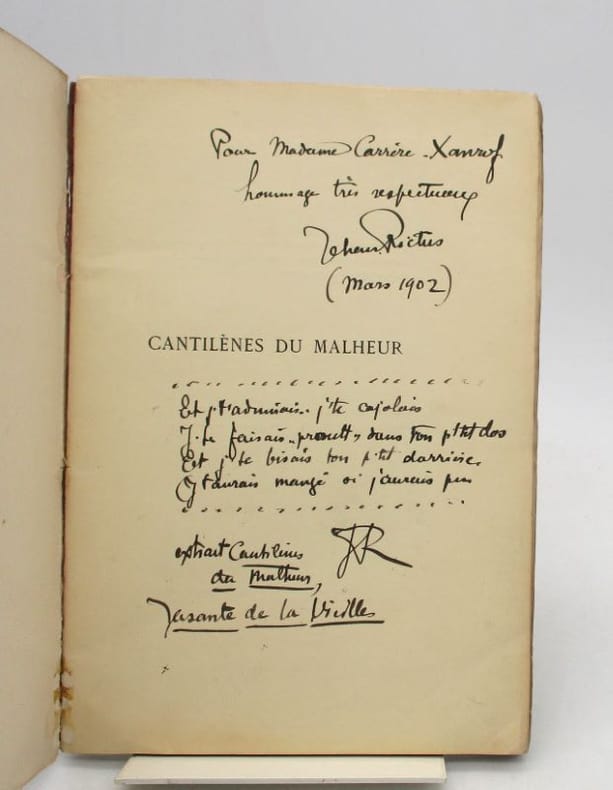 Pour Madame Carrère-Xanrof
hommage très respectueux
Jehan Rictus
(Mars 1902)
CANTILÈNES DU MALHEUR
Et j't'admirais.. j'te cajolais
J'te faisais „proutt„ dans ton p'tit dos
Et j'te bisais ton p'tit darrière
J't'aurais mangé si j'aurais pu
extrait Cantilènes
du Malheur,
JR
Jasante de la Vieille